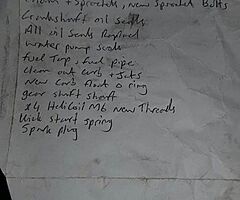 + Sprockets, new Sprocket Bolts
Crankshaft oil Seals
All oil Seals Replaced
water pump Seals
fuel Tap, fuel pipe
clean out carb + Jets
new carb float o ring
gear shaft shaft
x4 HeliCoil M6 new Threads
Kick start spring
Spark plug